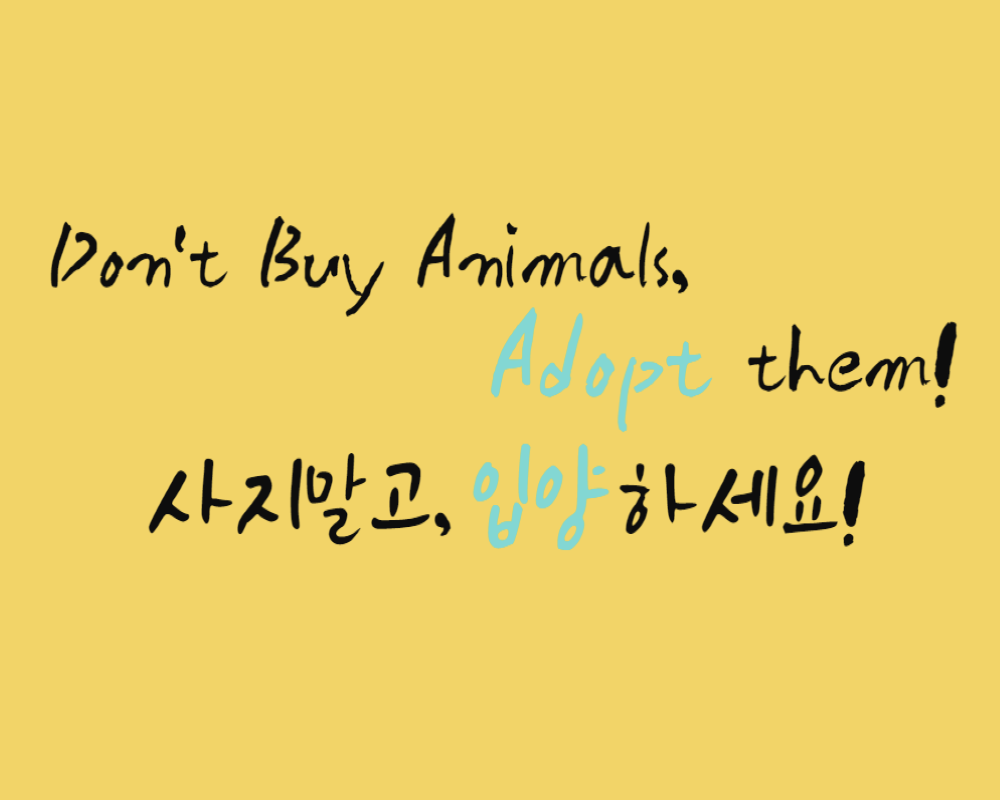 Don't Buy Animals,
Adopt them!
사지말고, 입양하세요!